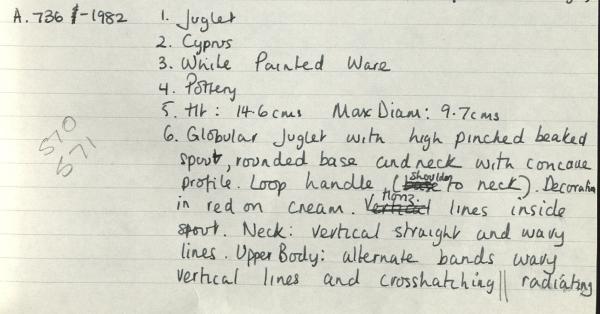 A. 736 -1982
1. Juglet
2. Cyprus
3. White Painted Ware
4. Pottery
5. Ht: 14.6cms Max Diam: 9.7cms
570
571
6. Globular Juglet with high pinched beaked
spout, rounded base and neck with concave
profile. Loop handle (base shoulder to neck). Decoration
in red on cream. Vertical Horiz. lines inside
spout. Neck: vertical straight and wavy
lines. Upper Body: alternate bands wavy
vertical lines and crosshatching || radiating